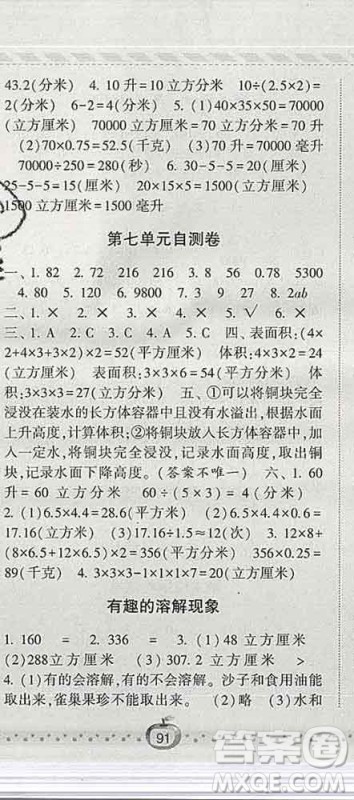 43.2(分米)　4. 10升=10立方分米　10÷(2.5×2)=
2(分米)　6-2=4(分米)　5. (1)40×35×50=70000
(立方厘米)　70000立方厘米=70立方分米=70升
(2)70×0.75=52.5(千克)　(3)70升=70000毫升
70000÷250=280(秒)　6. 30-5-5=20(厘米)
25-5-5=15(厘米)　20×15×5=1500(立方厘米)
1500立方厘米=1500毫升
第七单元自测卷
一、1. 82　2. 72　216　216　3. 8　56　0.78　5300
4. 80　120　6. 9800　7. 3　9　27　8. 2ab
二、1. ×　2. ×　3. ×　4. ×　5. √　6. ×
三、1. A　2. C　3. A　4. C　四、表面积:(4×
2+4×3+3×2)×2=52(平方厘米)　体积:4×3×2=24
(立方厘米)　表面积:3×3×6=54(平方厘米)
体积:3×3×3=27(立方厘米)　五、①可以将铜块完全
浸没在装水的长方体容器中且没有水溢出,根据水面
上升高度,计算体积;②将铜块放入长方体容器中,
加入一定水,将铜块完全浸没,记录水面高度,取出铜
块,记录水面下降高度。(答案不唯一)　六、1. 60
升=60 立方分米　60÷(5×4)=3(分米)
2. (1)6.5×4.4=28.6(平方米)　(2)6.5×4.4×0.6=
17.16(立方米)　(3)17.16÷1.5≈12(次)　3. 12×8+
(8×6.5+12×6.5)×2=356(平方米)　356×0.25=
89(千克)　4. 3×3×3-1×1×1×7=20(立方厘米)
有趣的溶解现象
1. 160　=　2. 336　=　3. (1)48 立方厘米
(2)288立方厘米　(3)307.2 立方厘米　>
4. (1)有的会溶解,有的不会溶解。沙子和食用油能
取出来,雀巢果珍不能取出来。　(2)略　(3)水和
91
答案圈
MXQE.COM